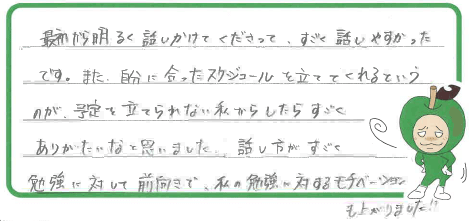 最初から明るく話しかけてくださって、すごく話しやすかった
です。また、自分に合ったスケジュールを立ててくれるという
のが、予定を立てられない私からしたらすごく
ありがたいなと思いました。話し方がすごく
勉強に対して前向きで、私の勉強に対するモチベーション
も上がりました!!